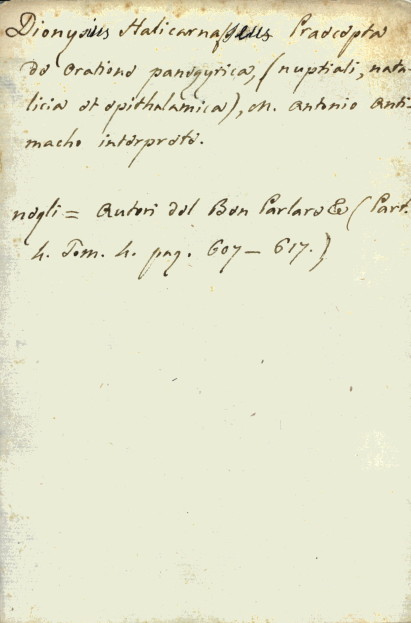 Dionysius Halicarnasseus Praecepta
de oratione panegyrica, (nuptiali, nata-
licia et epithalamica), M. Antonio Anti-
macho interprete.
negli = Autori del Ben Parlare & (Part.
4. Tom. 4. pag. 607 – 617.)